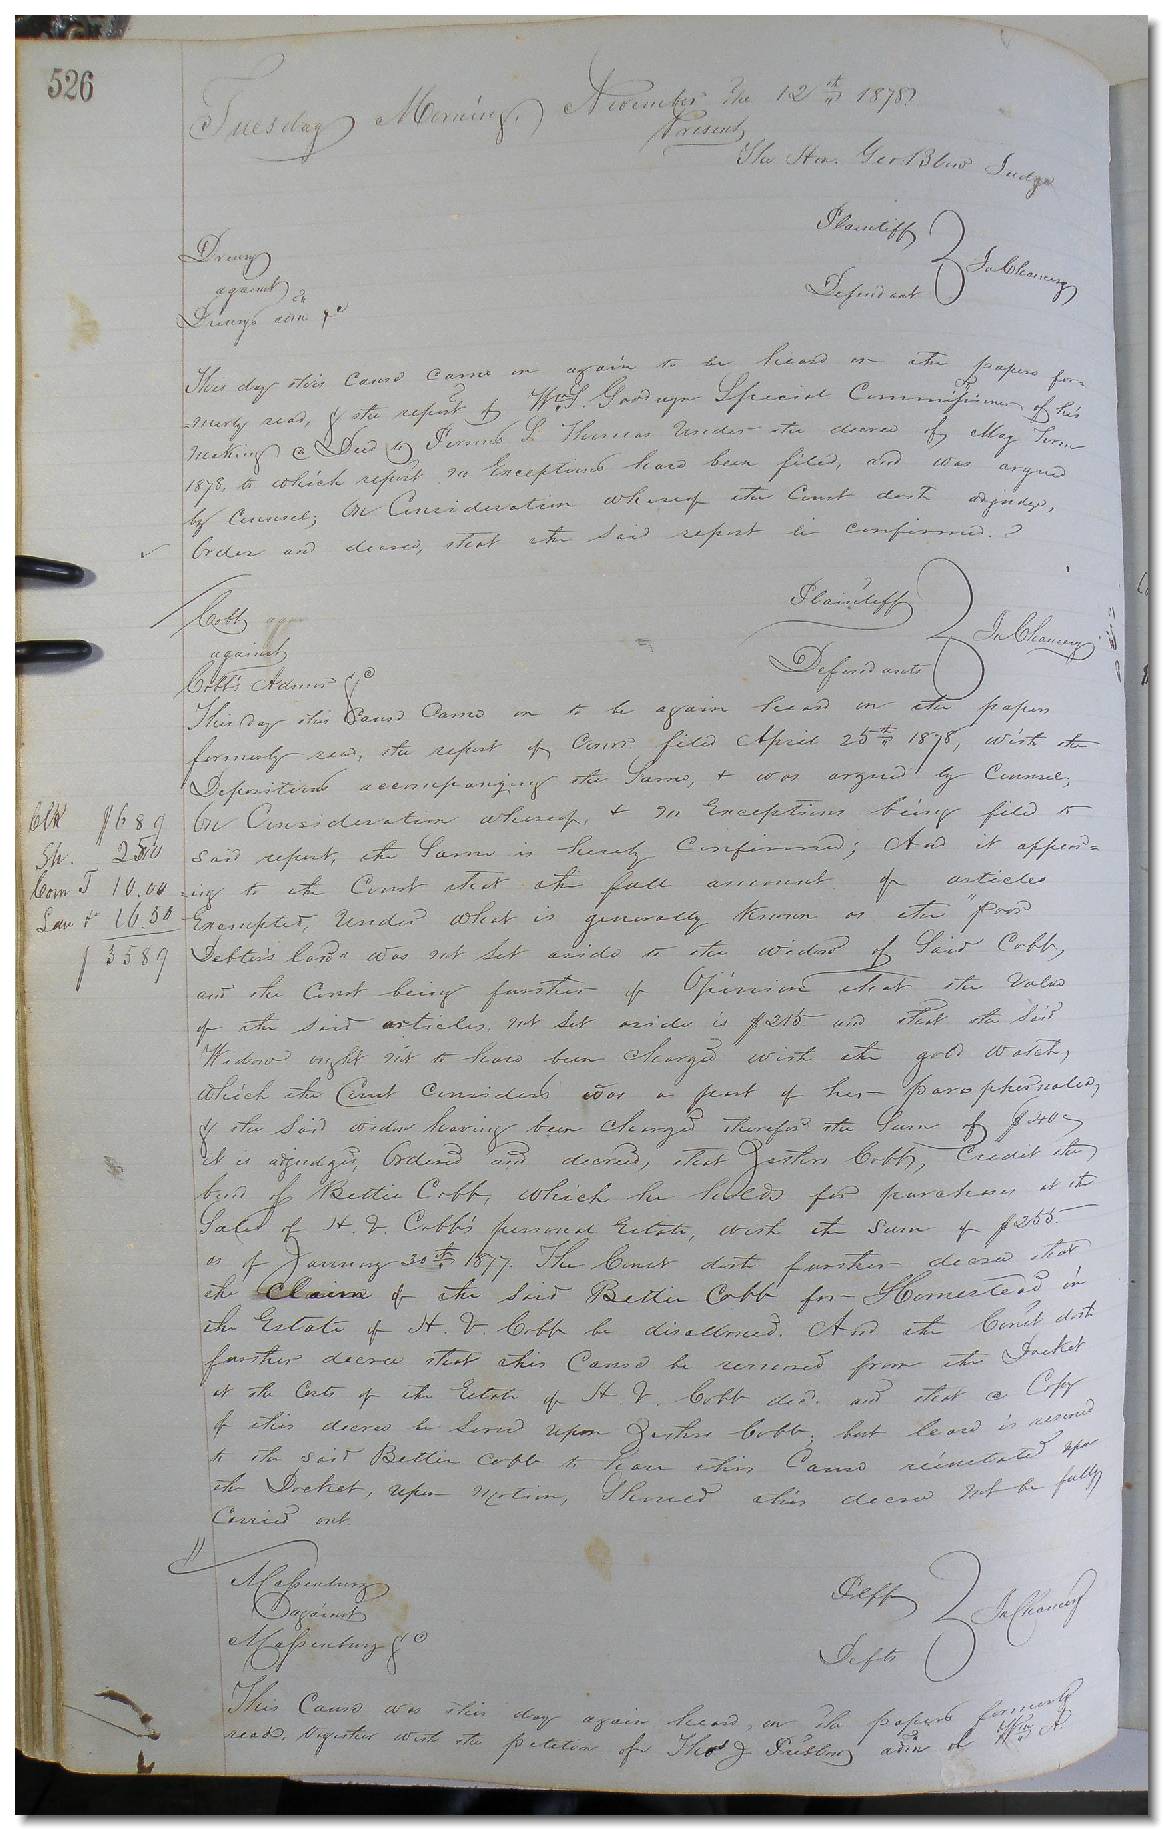 526
Tuesday Morning, November the 12th 1878
Present
The Hon. Geo Blow Judge
Drewry Plaintiff
against In Chancery
Drewry's adm &c Defendant
This day this cause came on again to be heard on the papers for-
-merly read, & the report of Wm S. Goodwyn Special Commissioner of his
making a Deed to L. Thomas Under the decree of May Term
1878, to which report no Exceptions have been filed, and was argued
by Counsel; On Consideration whereof the Court doth adjudge,
Order and decree, that the said report be confirmed.
Cobb Plaintiff
against In Chancery
Cobb's Admor &c Defendants
This day this cause came on to be again heard on the papers
formerly read, the report of Comr. filed April 25th 1878, with the
Depositions accompanying the same, & was argued by Counsel,
On Consideration whereof, & no Exceptions being filed to
said report, the same is hereby Confirmed; And it appear=
ing to the Court that the full amount of articles
Exempted, Under what is generally known as the "Poor
Debtor's law" was not set aside to the widow of said Cobb,
and the Court being further of Opinion that the Value
of the said articles, not set aside is $215 and that the said
Widow ought not to have been charged with the gold watch,
which the Court considers was a part of her paraphernalia,
& the said widow having been charged therefor the sum of $40
it is adjudged, Ordered and decreed, that Cobb, Credit the
bond of Bettie Cobb, which he holds for purchases at the
Sale of H. V. Cobb's personal Estate, with the sum of $255
as of January 30th 1877. The Court doth further decree that
the Claim of the said Bettie Cobb for Homestead in
the Estate of H. V. Cobb be disallowed. And the Court doth
further decree that this Cause be removed from the Docket
at the Costs of the Estate of H. V. Cobb decd. and that a Copy
of this decree be served upon Cobb; but leave is reserved
to the said Bettie Cobb to have this Cause reinstated upon
the Docket, upon motion, Should this decree not be fully
Carried out.
Clk $6 89
Sh. 2 50
Com T 10.00
16.50
$ 35 89
Massenburg Plff
against In Chancery
Massenburg &c Defts
This Cause was this day again heard, on the papers formerly
read, together with the petition of Thos J Pretlow adm of